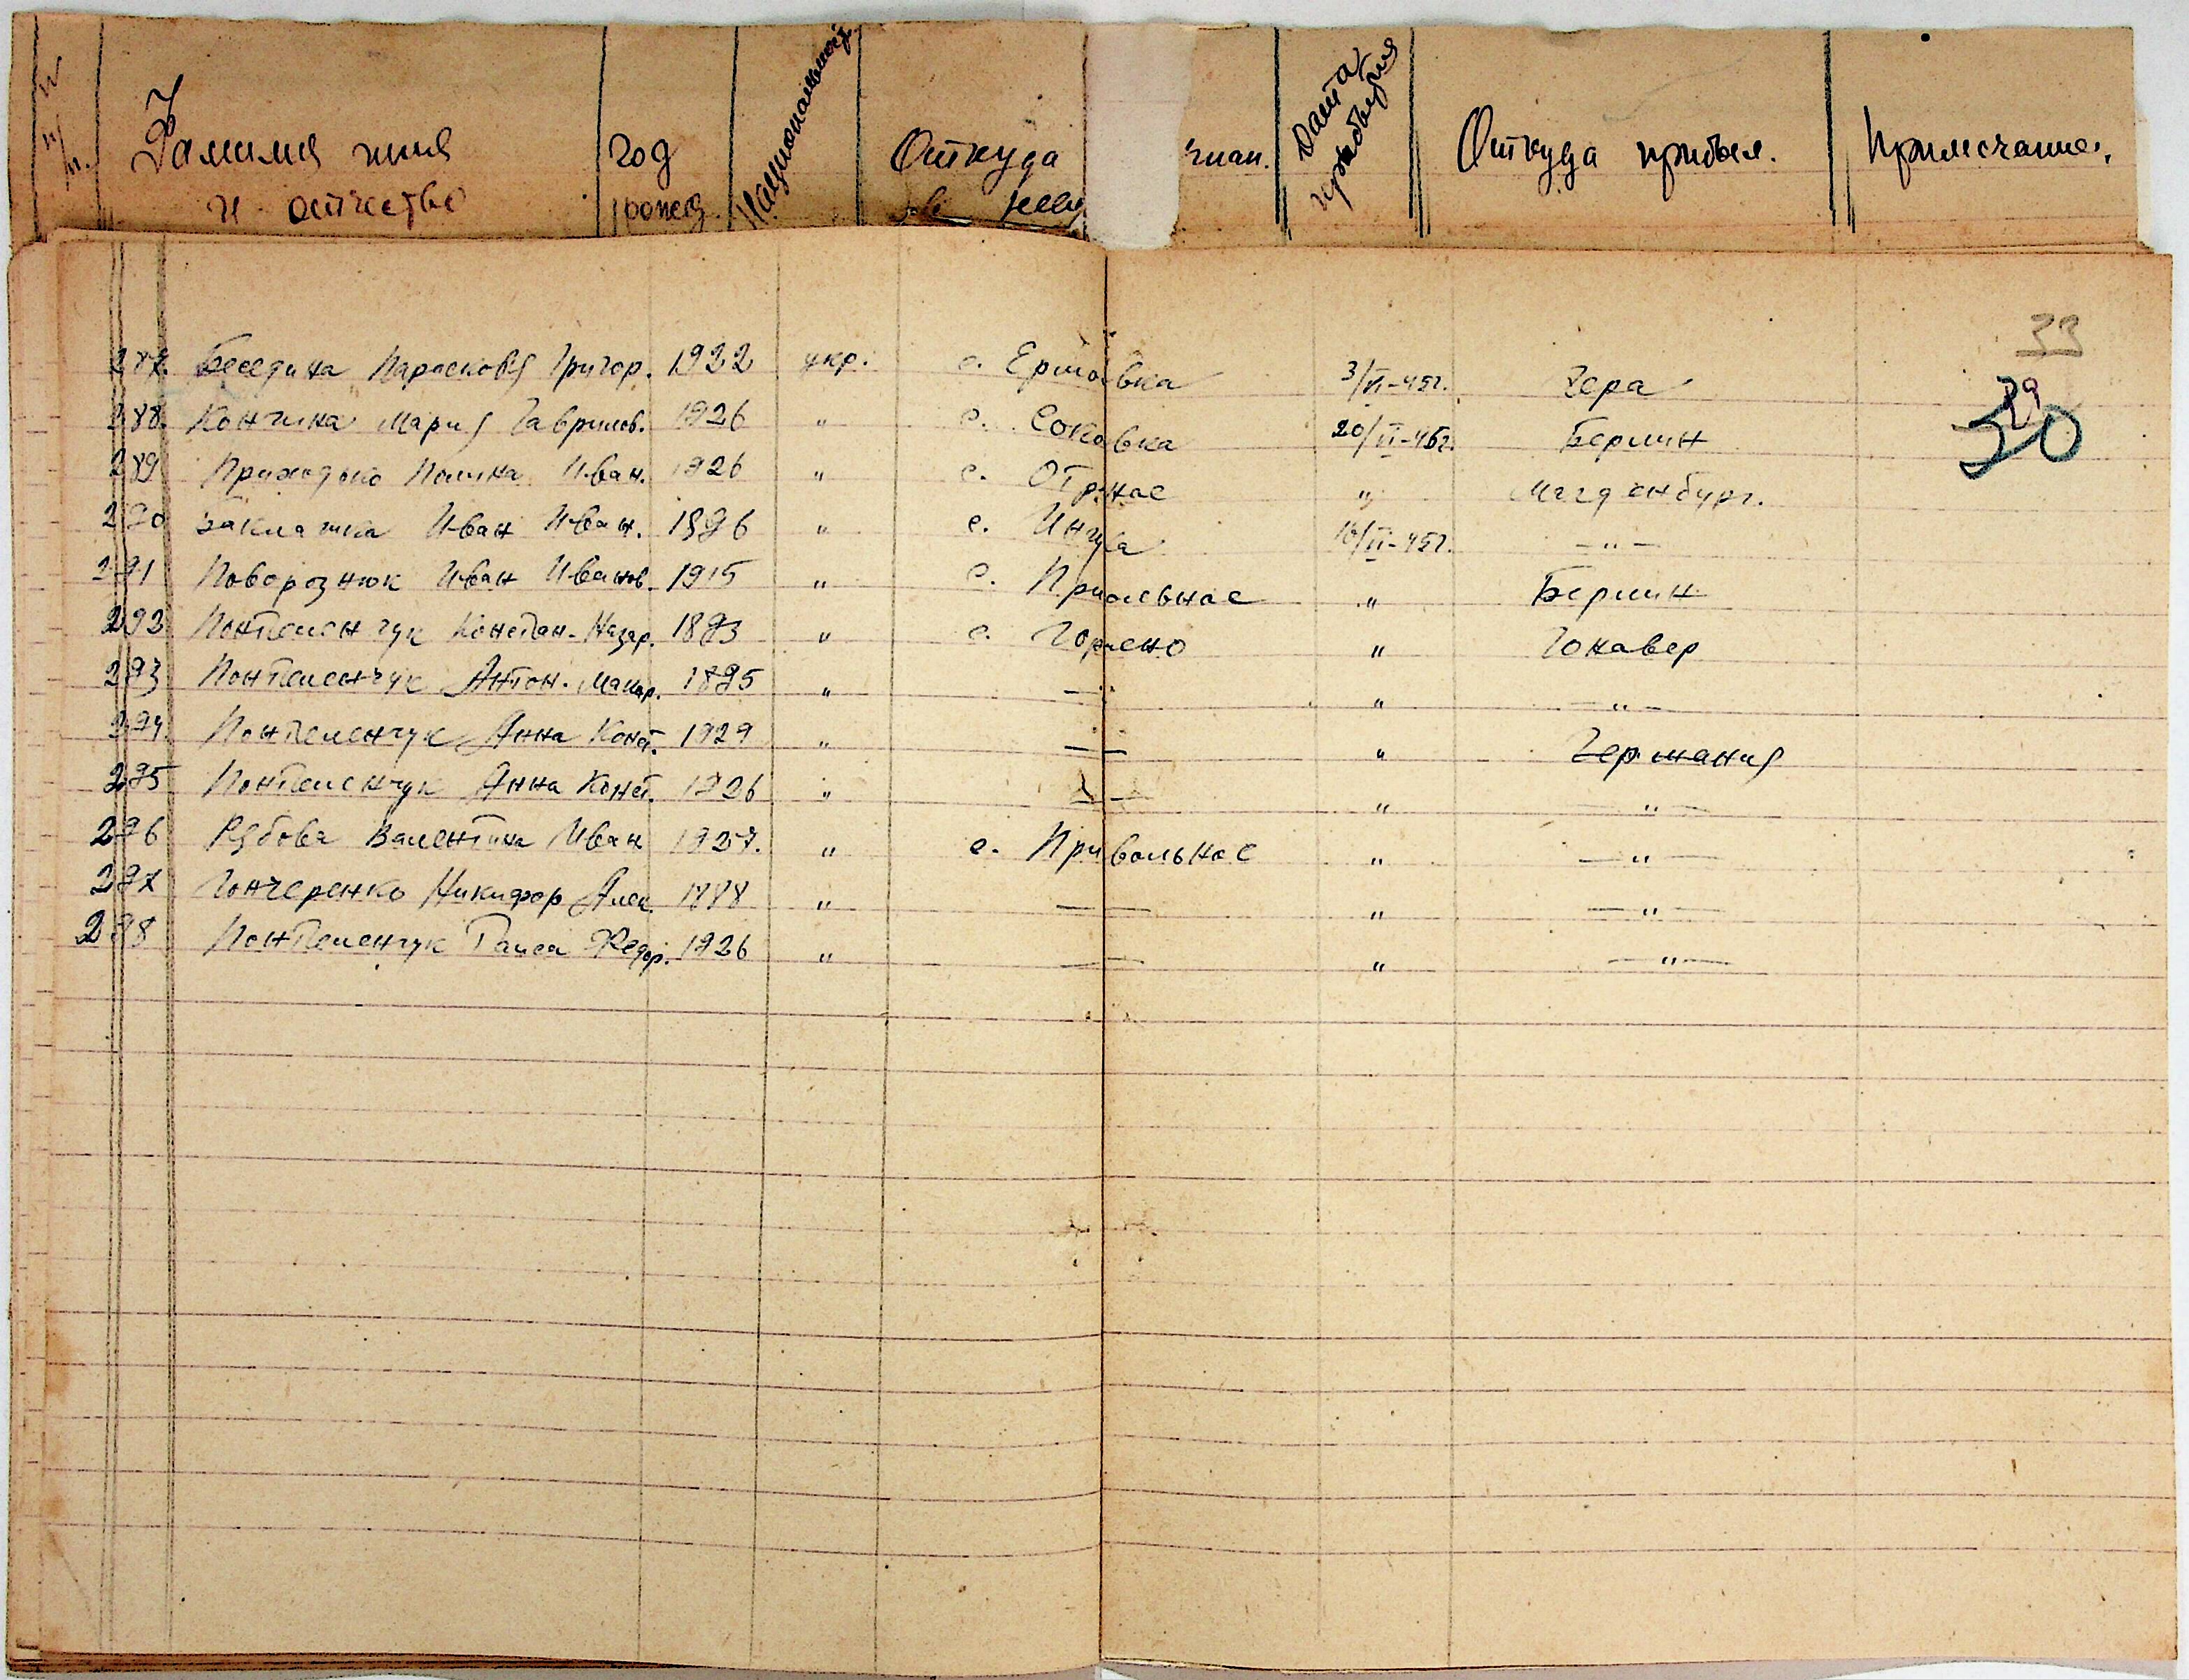 п/п. Фамилия имя и отчество год рожд. Национальность Откуда чпан. Дата прибытия Откуда прибыл. Примечание.
33
287. Беседина Парасковя Григор. 1922 укр. с. Ершовка 3/VI-45г. Гера
29
30
288. Кончина Мария Гаврилов. 1926 " с. Соковка 20/VI-45г. Берлин
289 Приходько Полина Иван. 1926 " с. " Магденбург.
290 Иван Иван. 1896 " с. 16/VI-45г. —"—
291 Поворознюк Иван Иванов. 1915 " с. " Берлин
292 Понтеленчук Констан. Назар. 1893 " с. " Гонавер
293 Понтеленчук Антон. Макар. 1895 " —"— " —"—
294. Понтеленчук Анна Конст. 1929 " —"— " Германия
295 Понтеленчук Анна Конст. 1926 " —"— " —"—
296 Рябова Валентина Иван 1927. " с. Привольное " —"—
297 Гончеренко Никифор Алек. 1888 " —— " —"—
298 Понтеленчук Таиса Федор. 1926 " —— " —"—